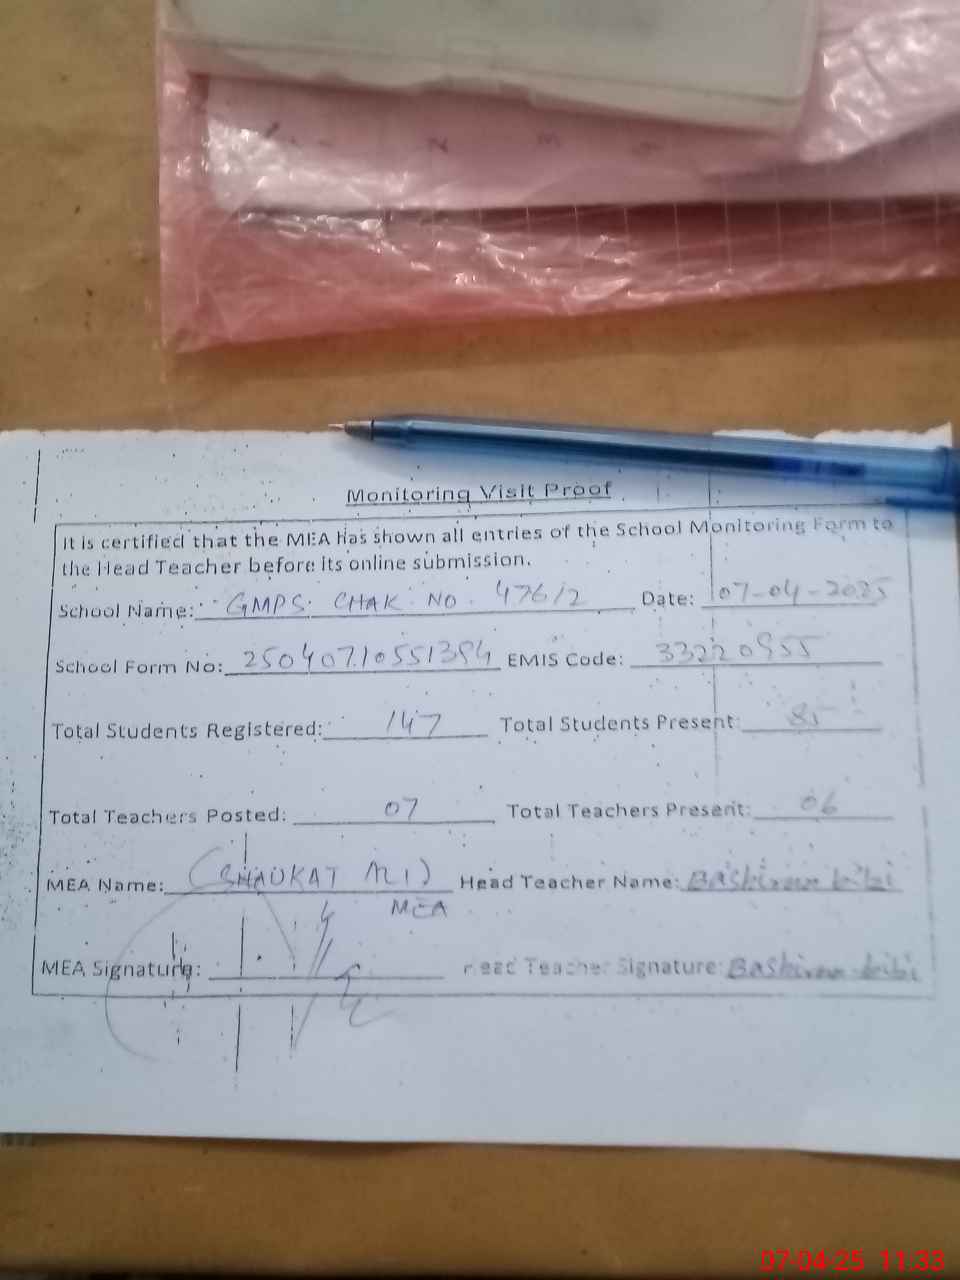 Monitoring Visit Proof
It is certified that the MEA has shown all entries of the School Monitoring Form to
the Head Teacher before its online submission.
School Name: GMPS. CHAK. NO. 476/2 Date: 07-04-2025
School Form No: 25040710551394 EMIS Code: 33220955
Total Students Registered: 147 Total Students Present: 85
Total Teachers Posted: 07 Total Teachers Present: 06
MEA Name: (SHAUKAT ALI) Head Teacher Name: Bashiran bibi
MEA
MEA Signature: Head Teacher Signature: Bashiran bibi
07-04-25 11:33